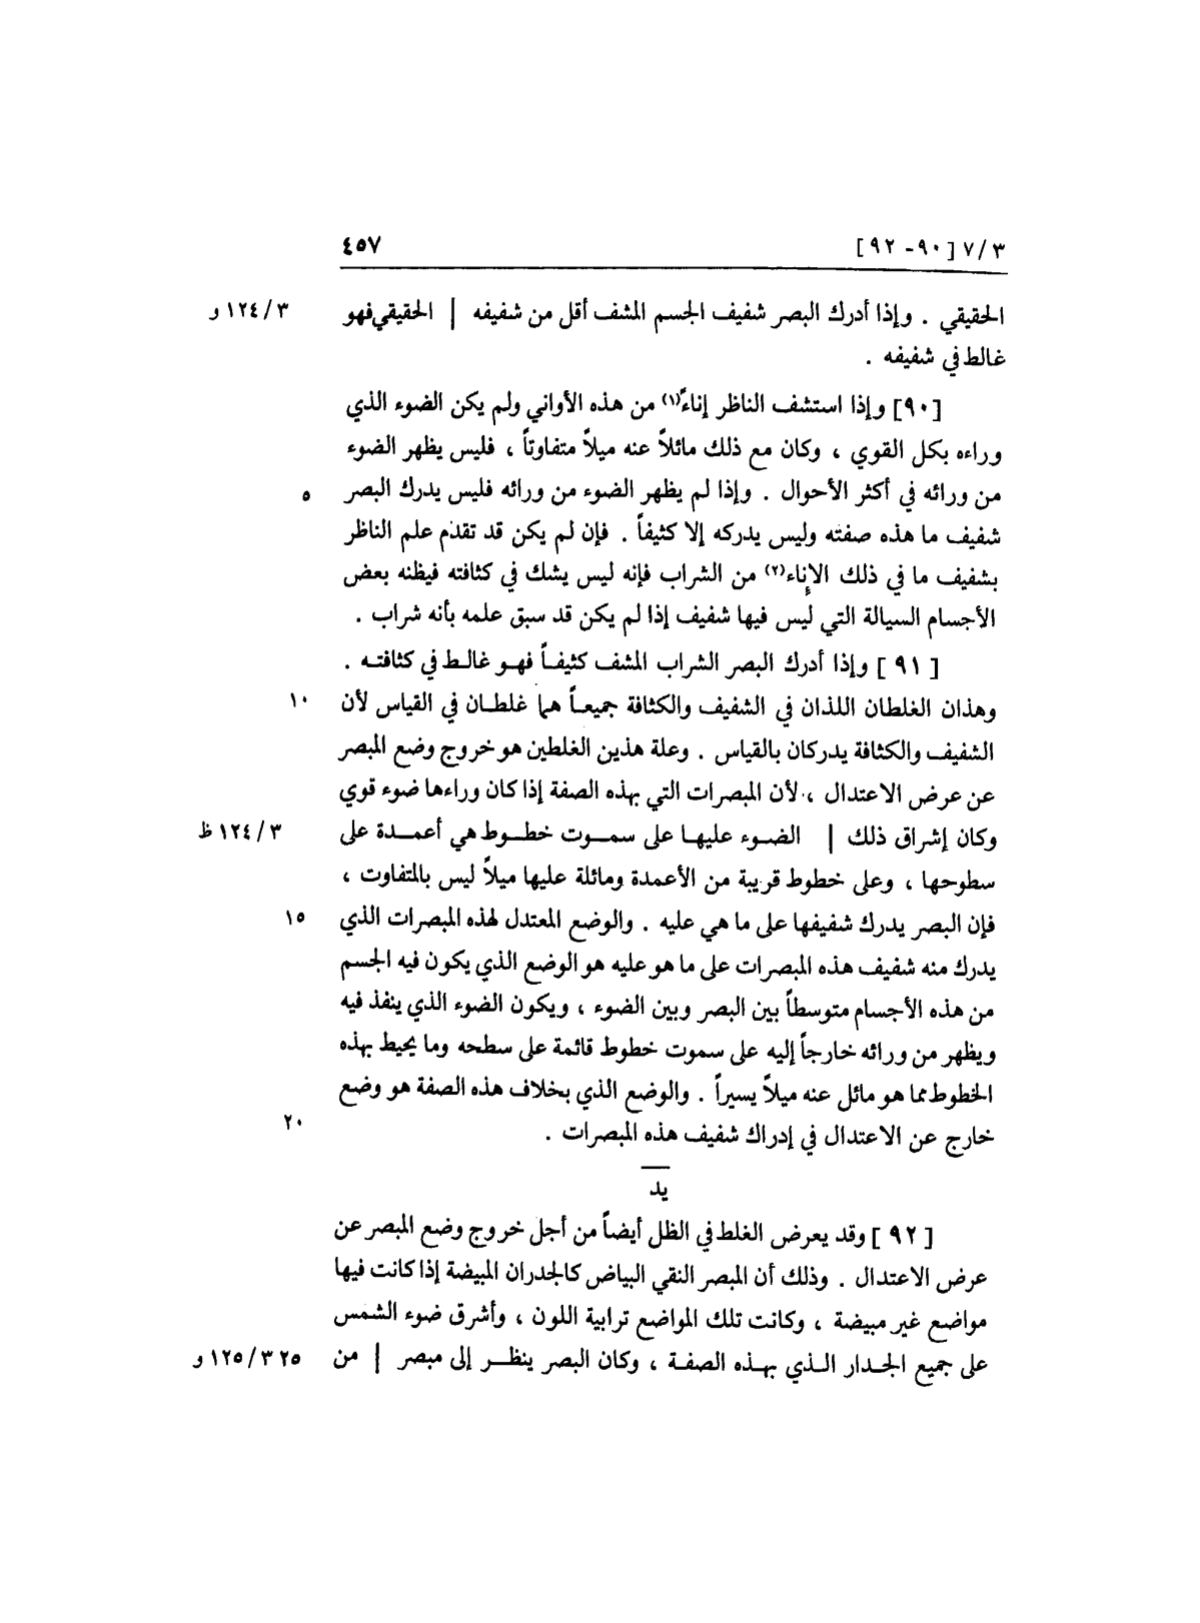 ٣/٧ [٩٠-٩٢] ٤٥٧
الحقيقي . وإذا أدرك البصر شفيف الجسم المشف أقل من شفيفه | الحقيقي فهو ٣/١٢٤ و
غالط في شفيفه .
[٩٠] وإذا استشف الناظر إناءً(١) من هذه الأواني ولم يكن الضوء الذي
وراءه بكل القوي ، وكان مع ذلك مائلاً عنه ميلاً متفاوتاً ، فليس يظهر الضوء
من ورائه في أكثر الأحوال . وإذا لم يظهر الضوء من ورائه فليس يدرك البصر ٥
شفيف ما هذه صفته وليس يدركه إلا كثيفاً . فإن لم يكن قد تقدم علم الناظر
بشفيف ما في ذلك الإناء(٢) من الشراب فإنه ليس يشك في كثافته فيظنه بعض
الأجسام السيالة التي ليس فيها شفيف إذا لم يكن قد سبق علمه بأنه شراب .
[٩١] وإذا أدرك البصر الشراب المشف كثيفاً فهو غالط في كثافته .
وهذان الغلطان اللذان في الشفيف والكثافة جميعاً هما غلطان في القياس لأن ١٠
الشفيف والكثافة يدركان بالقياس . وعلة هذين الغلطين هو خروج وضع المبصر
عن عرض الاعتدال ، لأن المبصرات التي بهذه الصفة إذا كان وراءها ضوء قوي
وكان إشراق ذلك | الضوء عليها على سموت خطوط هي أعمدة على ٣/١٢٤ ظ
سطوحها ، وعلى خطوط قريبة من الأعمدة ومائلة عليها ميلاً ليس بالمتفاوت ،
فإن البصر يدرك شفيفها على ما هي عليه . والوضع المعتدل لهذه المبصرات الذي ١٥
يدرك منه شفيف هذه المبصرات على ما هو عليه هو الوضع الذي يكون فيه الجسم
من هذه الأجسام متوسطاً بين البصر وبين الضوء ، ويكون الضوء الذي ينفذ فيه
ويظهر من ورائه خارجاً إليه على سموت خطوط قائمة على سطحه وما يحيط بهذه
الخطوط مما هو مائل عنه ميلاً يسيراً . والوضع الذي بخلاف هذه الصفة هو وضع
خارج عن الاعتدال في إدراك شفيف هذه المبصرات . ٢٠
يد
[٩٢] وقد يعرض الغلط في الظل أيضاً من أجل خروج وضع المبصر عن
عرض الاعتدال . وذلك أن المبصر النقي البياض كالجدران المبيضة إذا كانت فيها
مواضع غير مبيضة ، وكانت تلك المواضع ترابية اللون ، وأشرق ضوء الشمس
على جميع الجدار الذي بهذه الصفة ، وكان البصر ينظر إلى مبصر | من ٢٥ ٣/١٢٥ و